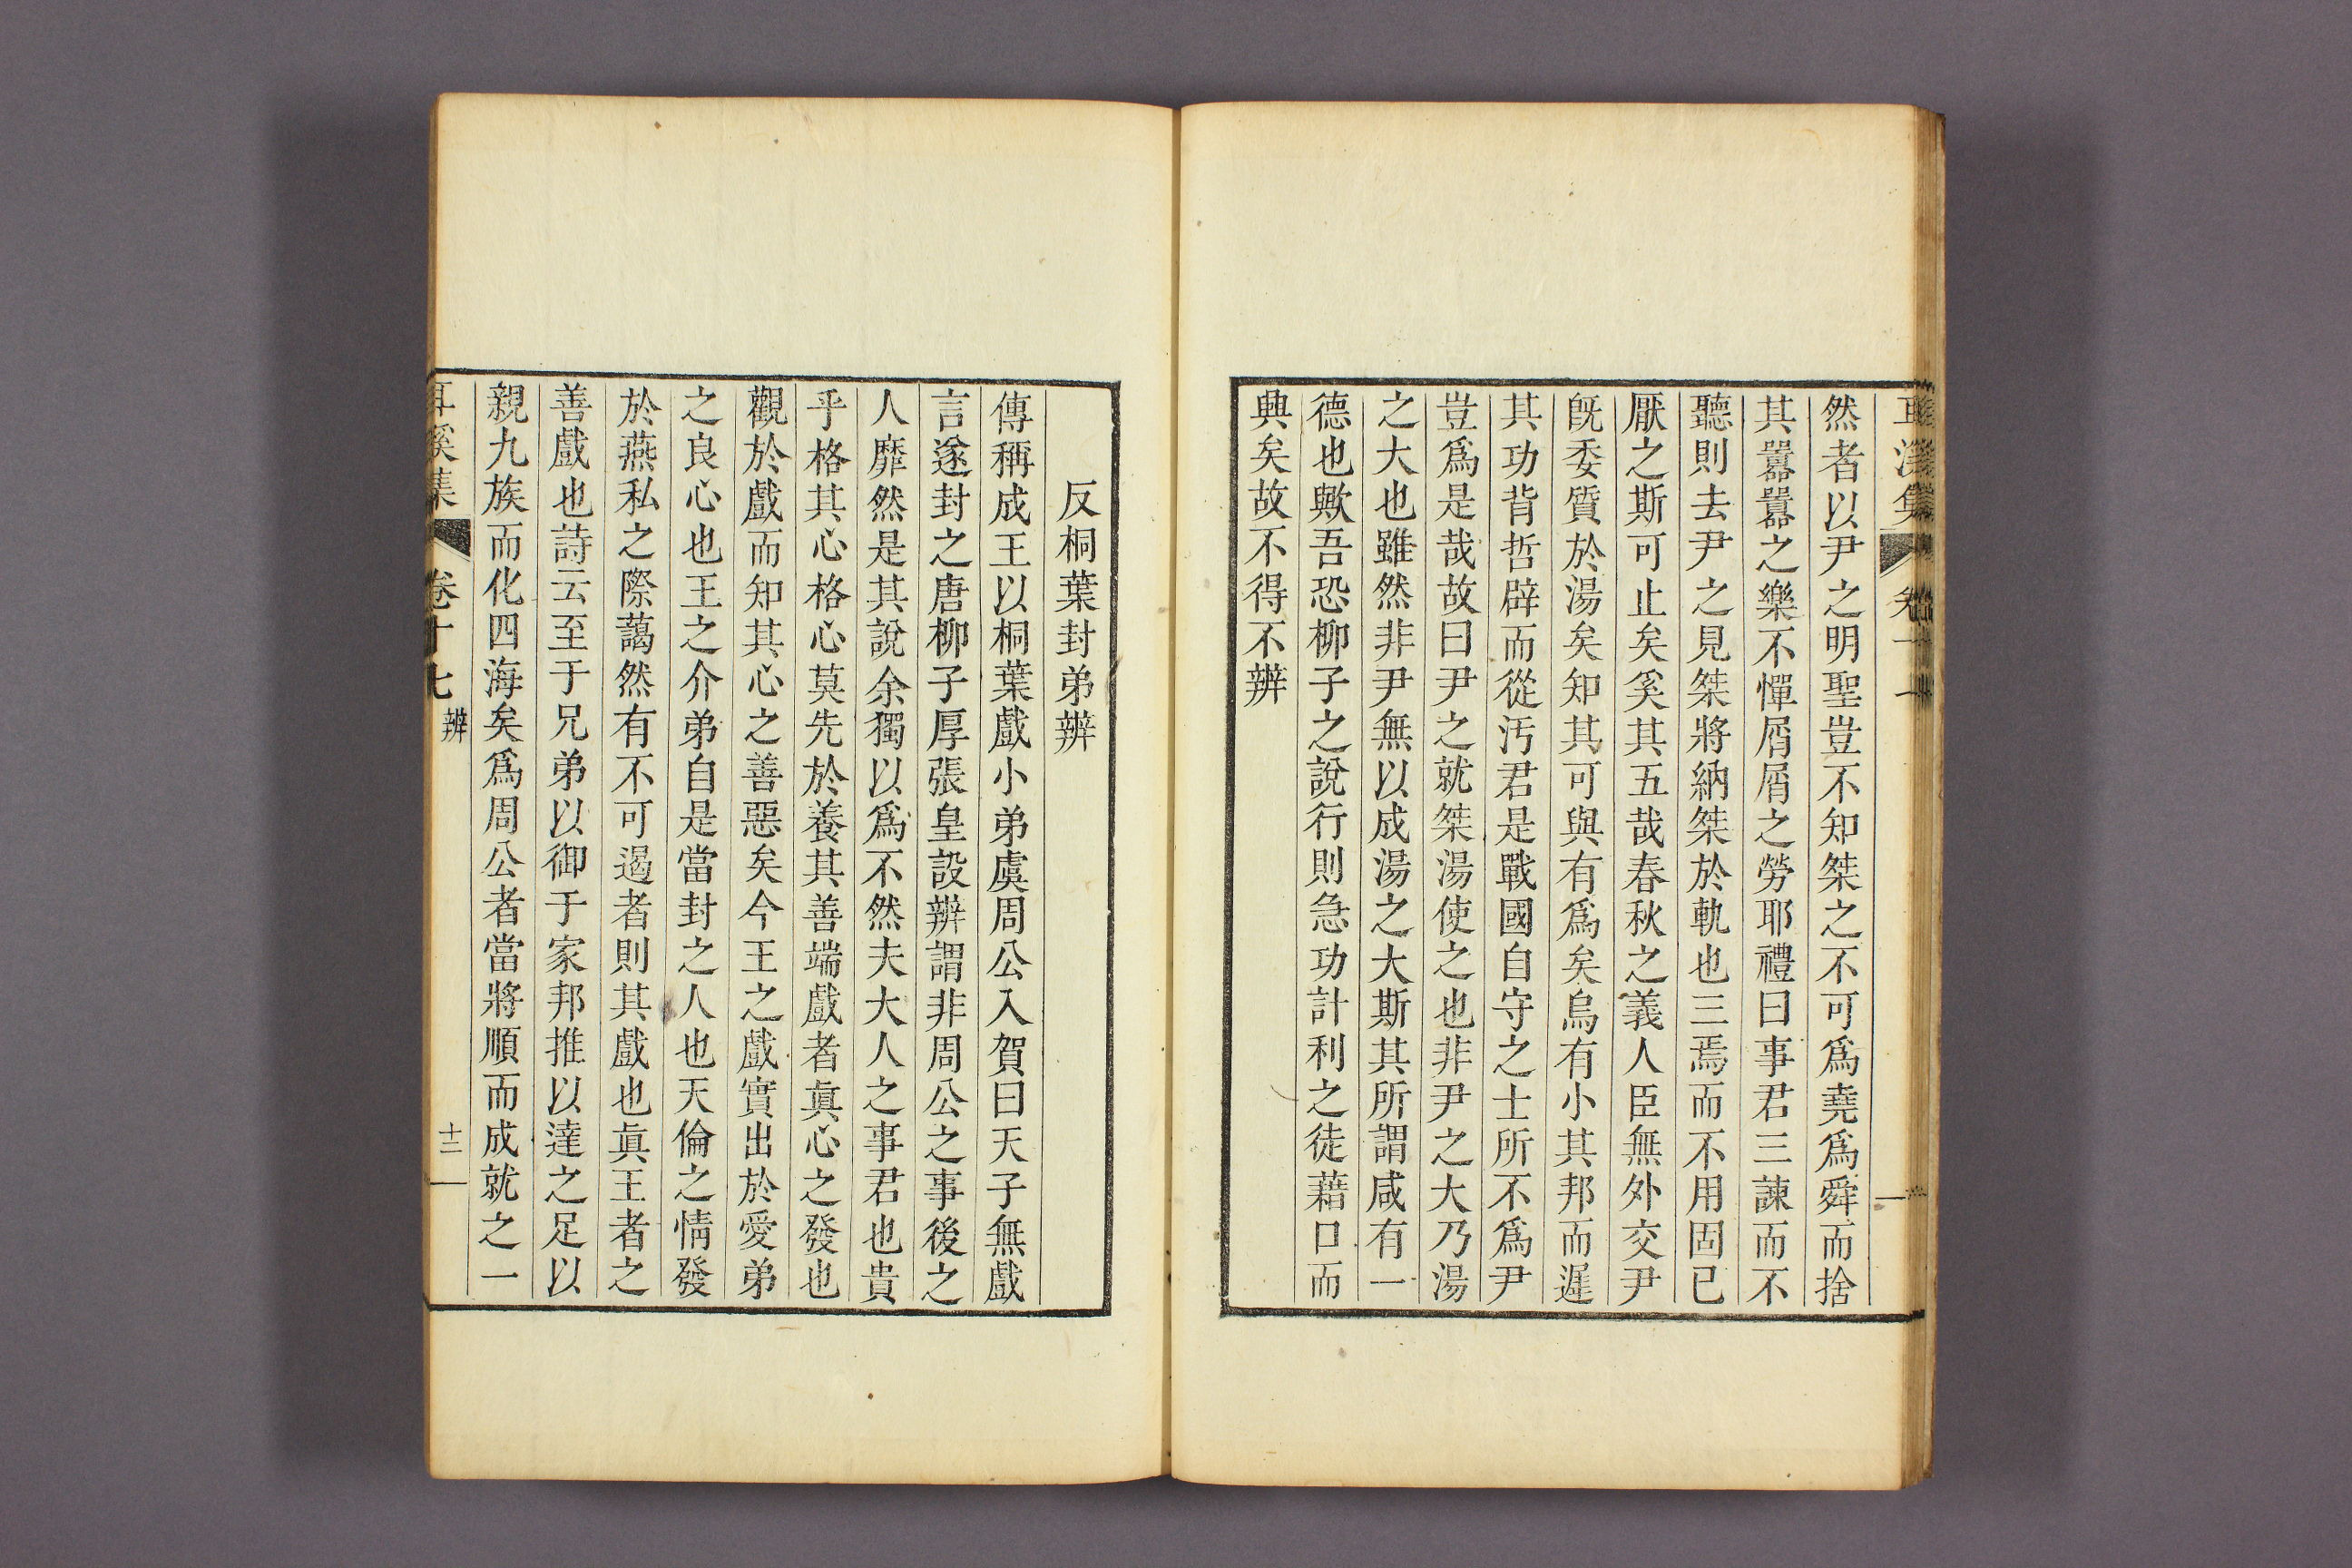 然者以尹之明聖豈不知桀之不可爲堯爲舜而捨
其囂囂之樂不憚屑屑之勞耶禮曰事君三諫而不
聽則去尹之見桀將納桀於軌也三焉而不用固已
厭之斯可止矣奚其五哉春秋之義人臣無外交尹
旣委質於湯矣知其可與有爲矣烏有小其邦而遲
其功背哲辟而從汚君是戰國自守之士所不爲尹
豈爲是哉故曰尹之就桀湯使之也非尹之大乃湯
之大也雖然非尹無以成湯之大斯其所謂咸有一
德也歟吾恐柳子之說行則急功計利之徒藉口而
興矣故不得不辨
反桐葉封弟辨
傳稱成王以桐葉戲小弟虞周公入賀曰天子無戲
言遂封之唐柳子厚張皇設辨謂非周公之事後之
人靡然是其說余獨以爲不然夫大人之事君也貴
乎格其心格心莫先於養其善端戲者眞心之發也
觀於戲而知其心之善惡矣今王之戲實出於愛弟
之良心也王之介弟自是當封之人也天倫之情發
於燕私之際藹然有不可遏者則其戲也眞王者之
善戲也詩云至于兄弟以御于家邦推以達之足以
親九族而化四海矣爲周公者當將順而成就之一
耳溪集 卷十七 辨 十三